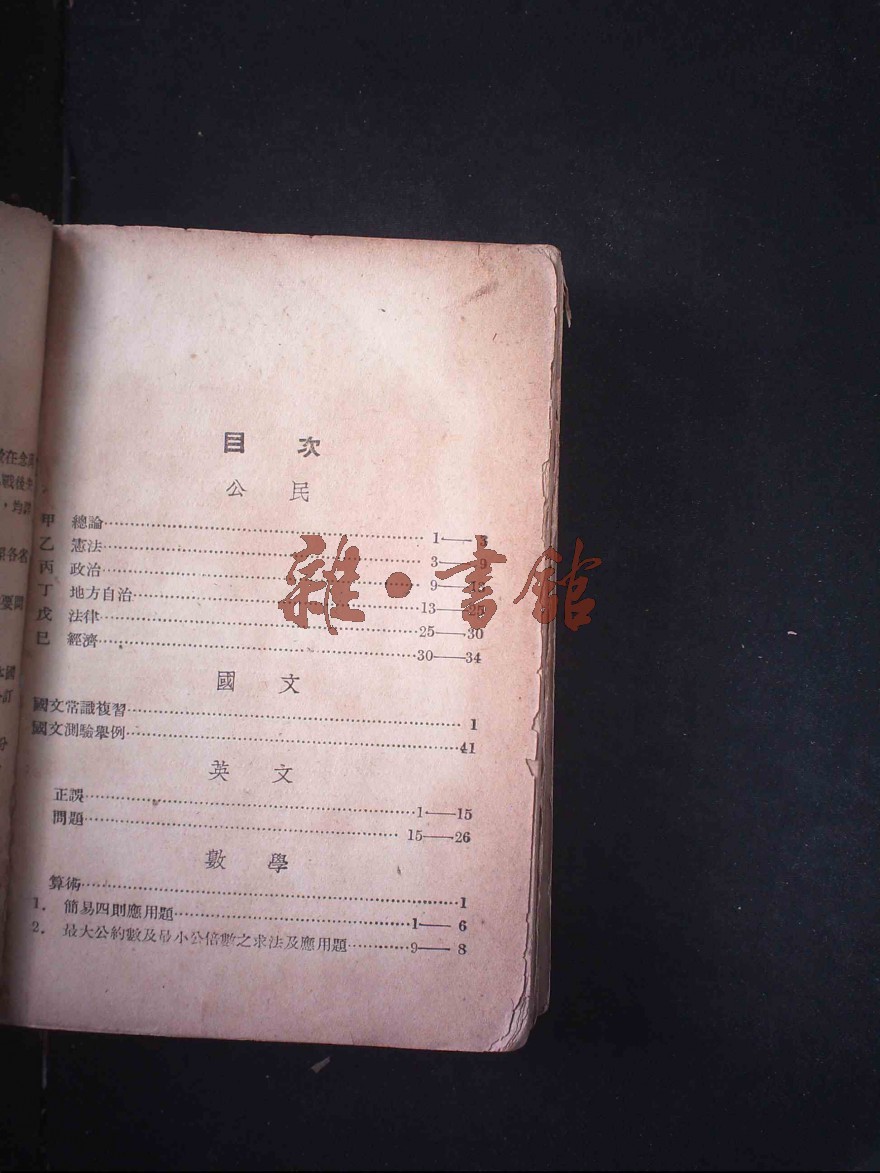 目 次
公 民
甲 總論 1——3
乙 憲法 3——9
丙 政治 9——13
丁 地方自治 13——25
戊 法律 25——30
巳 經濟 30——34
國 文
國文常識複習 1
國文測驗舉例 41
英 文
正誤 1——15
問題 15——26
數 學
算術 1
1. 簡易四則應用題 1——6
2. 最大公約數及最小公倍數之求法及應用題 9——8
雜·書館